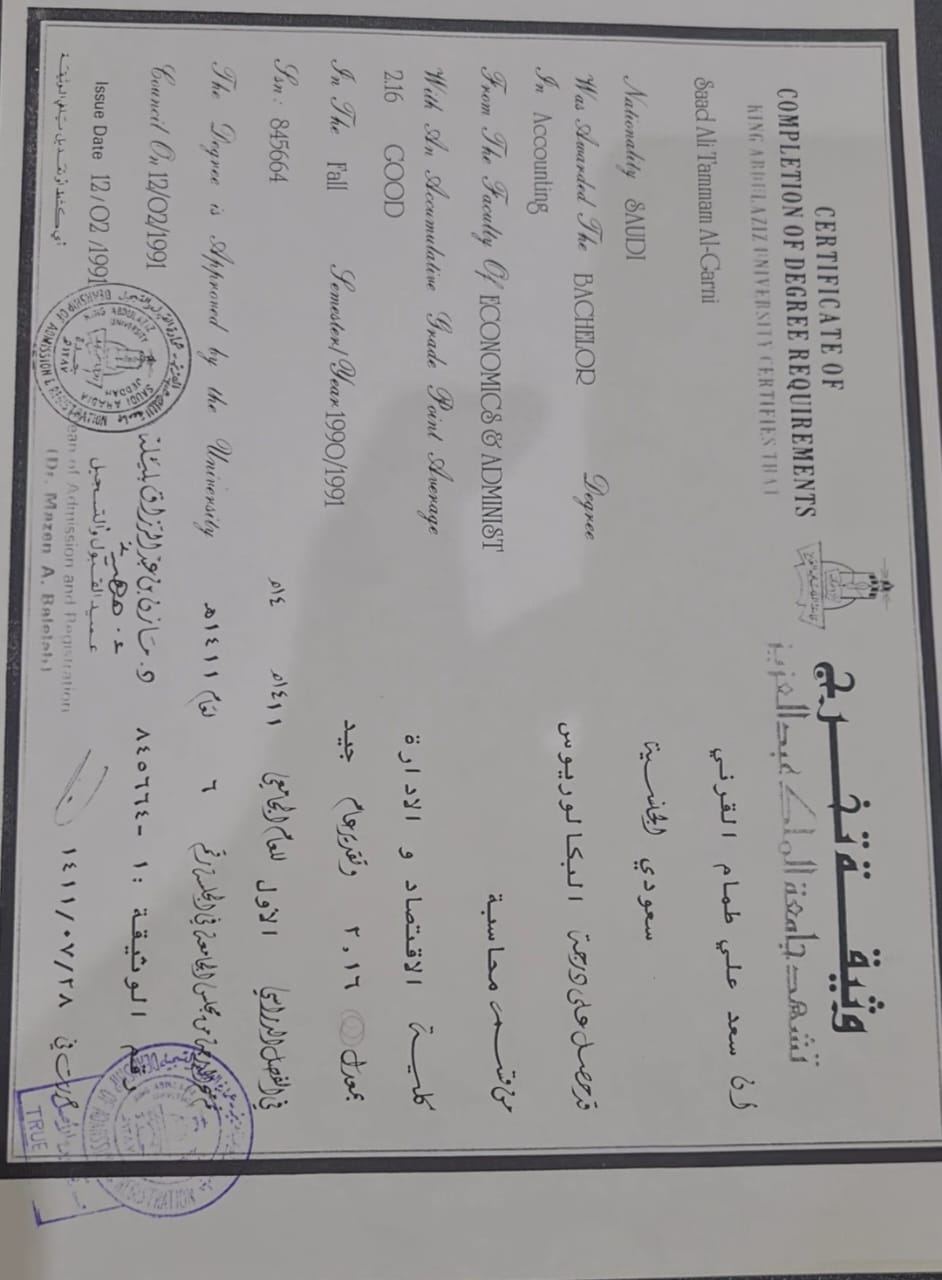 CERTIFICATE OF
COMPLETION OF DEGREE REQUIREMENTS
KING ABDULAZIZ UNIVERSITY CERTIFIES THAT
Saad Ali Tammam Al-Garni
Nationality SAUDI
Was Awarded The BACHELOR Degree
In Accounting
From The Faculty Of ECONOMICS & ADMINIST
With An Accumulative Grade Point Average
2.16 GOOD
In The Fall Semester/Year 1990/1991
Ssn: 845664
The Degree is Approved by the University
Council On 12/02/1991
Issue Date 12/02/1991
وثيقة تخرج
تشهد جامعة الملك عبد العزيز
أن سعد علي طمام القرني
سعودي الجنسية
قد حصل على درجة البكالوريوس
من قسم محاسبة
كلية الاقتصاد و الادارة
بمعدل ٢,١٦ وتقدير عام جيد
في الفصل الدراسي الأول للعام الجامعي ١٤١١هـ
من مجلس الجامعة في الجلسة رقم ٦ لعام ١٤١١هـ
رقم الوثيقة : ٨٤٥٦٦٤-١
١٤١١/٠٧/٢٨
عميد القبول والتسجيل
Dean of Admission and Registration
(Dr. Mazen A. Balelah)
KING ABDULAZIZ UNIVERSITY
JEDDAH
SAUDI ARABIA
DEANSHIP OF ADMISSION & REGISTRATION
TRUE